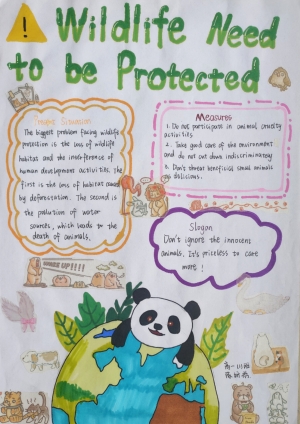 ! Wildlife Need
to be Protected
Present Situation
The biggest problem facing wildlife
protection is the loss of wildlife
habitat and the interference of
human development activities. the
first is the loss of habitat caused
by deforestation. The second is
the pollution of water
sources, which leads to the
death of animals.
Measures
1. Do not participate in animal cruelty
activities.
2. Take good care of the environment
and do not cut down indiscriminately
3. Don't threat beneficial small animals
as delicious.
Slogan
Don't ignore the innocent
animals. It's priceless to care
more!
WAKE UP!!!!